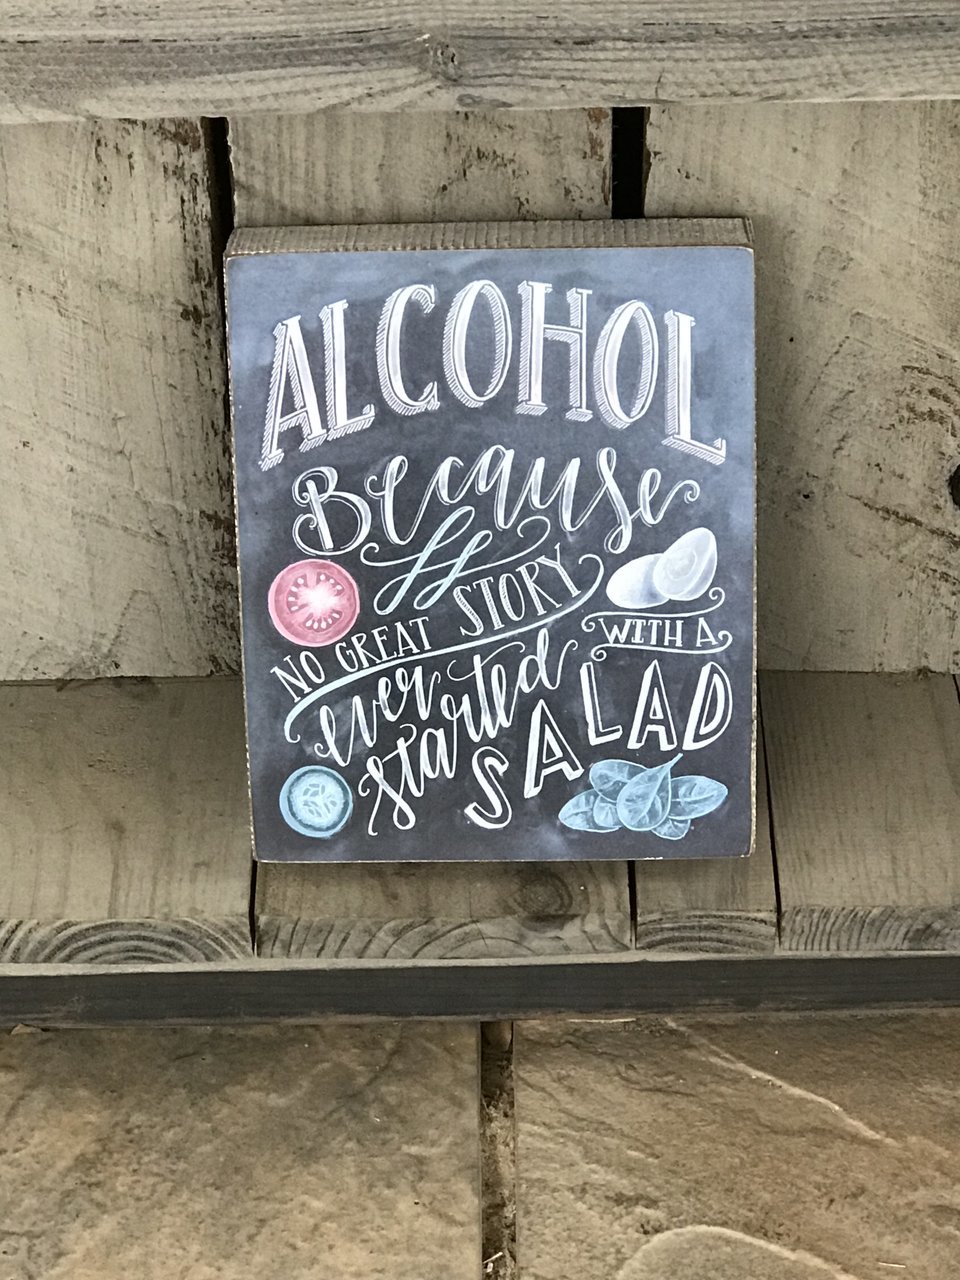 ALCOHOL
Because
NO GREAT STORY
ever started
WITH A
SALAD